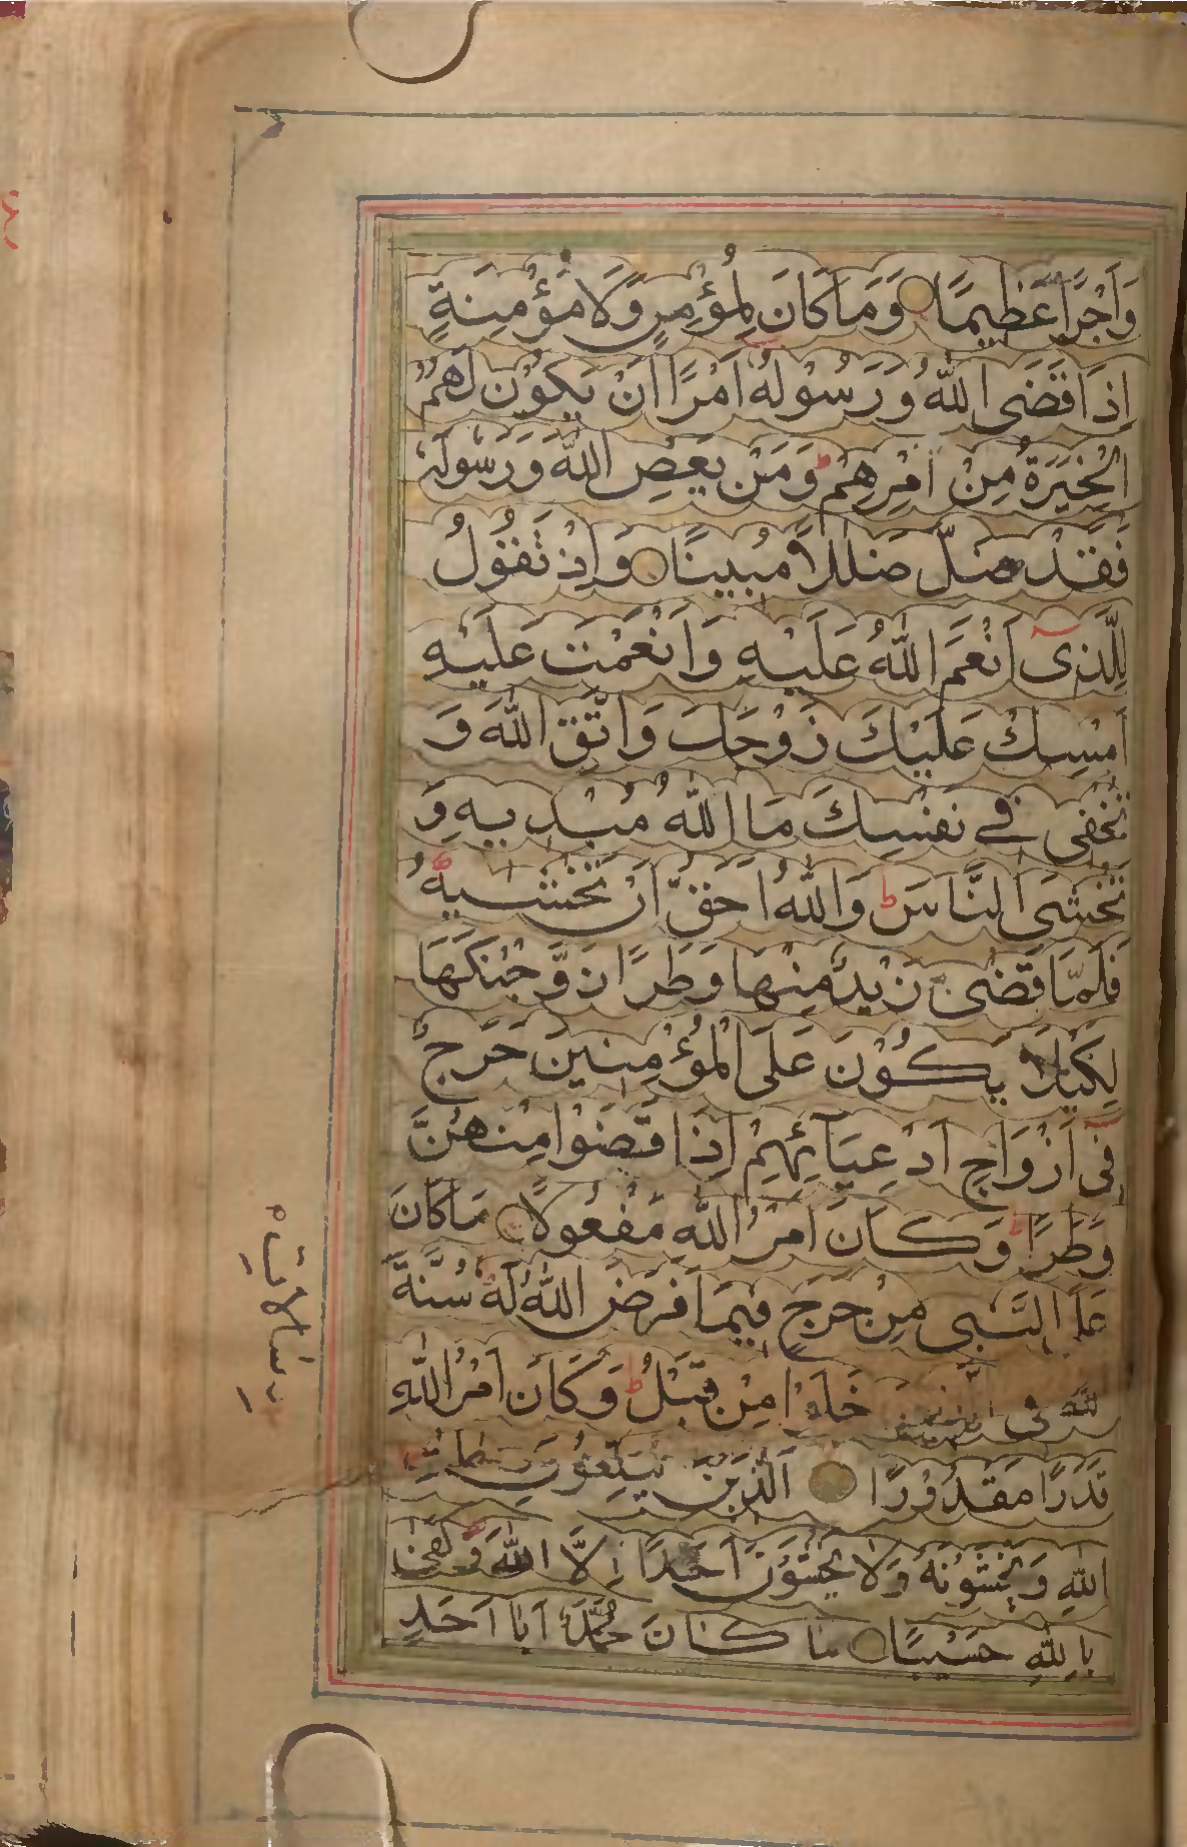 وَاَجْرًا عَظِيمًا وَمَا كَانَ لِمُؤْمِنٍ وَّلَا مُؤْمِنَةٍ
اِذَا قَضَى اللّٰهُ وَرَسُوْلُهٗ اَمْرًا اَنْ يَكُوْنَ لَهُمُ
الْخِيَرَةُ مِنْ اَمْرِهِمْ ط وَمَنْ يَعْصِ اللّٰهَ وَرَسُوْلَهٗ
فَقَدْ ضَلَّ ضَلٰلًا مُبِينًا وَاِذْ تَقُوْلُ
لِلَّذِىٓ اَنْعَمَ اللّٰهُ عَلَيْهِ وَاَنْعَمْتَ عَلَيْهِ
اَمْسِكْ عَلَيْكَ زَوْجَكَ وَاتَّقِ اللّٰهَ وَ
تُخْفِى فِى نَفْسِكَ مَا اللّٰهُ مُبْدِيهِ وَ
تَخْشَى النَّاسَ ط وَاللّٰهُ اَحَقُّ اَنْ تَخْشٰيهُ ط
فَلَمَّا قَضٰى زَيْدٌ مِنْهَا وَطَرًا زَوَّجْنٰكَهَا
لِكَيْلَا يَكُوْنَ عَلَى الْمُؤْمِنِينَ حَرَجٌ
فِىٓ اَزْوَاجِ اَدْعِيَآئِهِمْ اِذَا قَضَوْا مِنْهُنَّ
وَطَرًا ط وَكَانَ اَمْرُ اللّٰهِ مَفْعُولًا مَا كَانَ
عَلَى النَّبِى مِنْ حَرَجٍ فِيمَا فَرَضَ اللّٰهُ لَهٗ سُنَّةَ
اللّٰهِ فِى الَّذِينَ خَلَوْا مِنْ قَبْلُ ط وَكَانَ اَمْرُ اللّٰهِ
قَدَرًا مَقْدُوْرًا الَّذِينَ يُبَلِّغُوْنَ رِسٰلٰتِ
اللّٰهِ وَيَخْشَوْنَهٗ وَلَا يَخْشَوْنَ اَحَدًا اِلَّا اللّٰهَ ط وَكَفٰى
بِاللّٰهِ حَسِيبًا مَا كَانَ مُحَمَّدٌ اَبَا اَحَدٍ